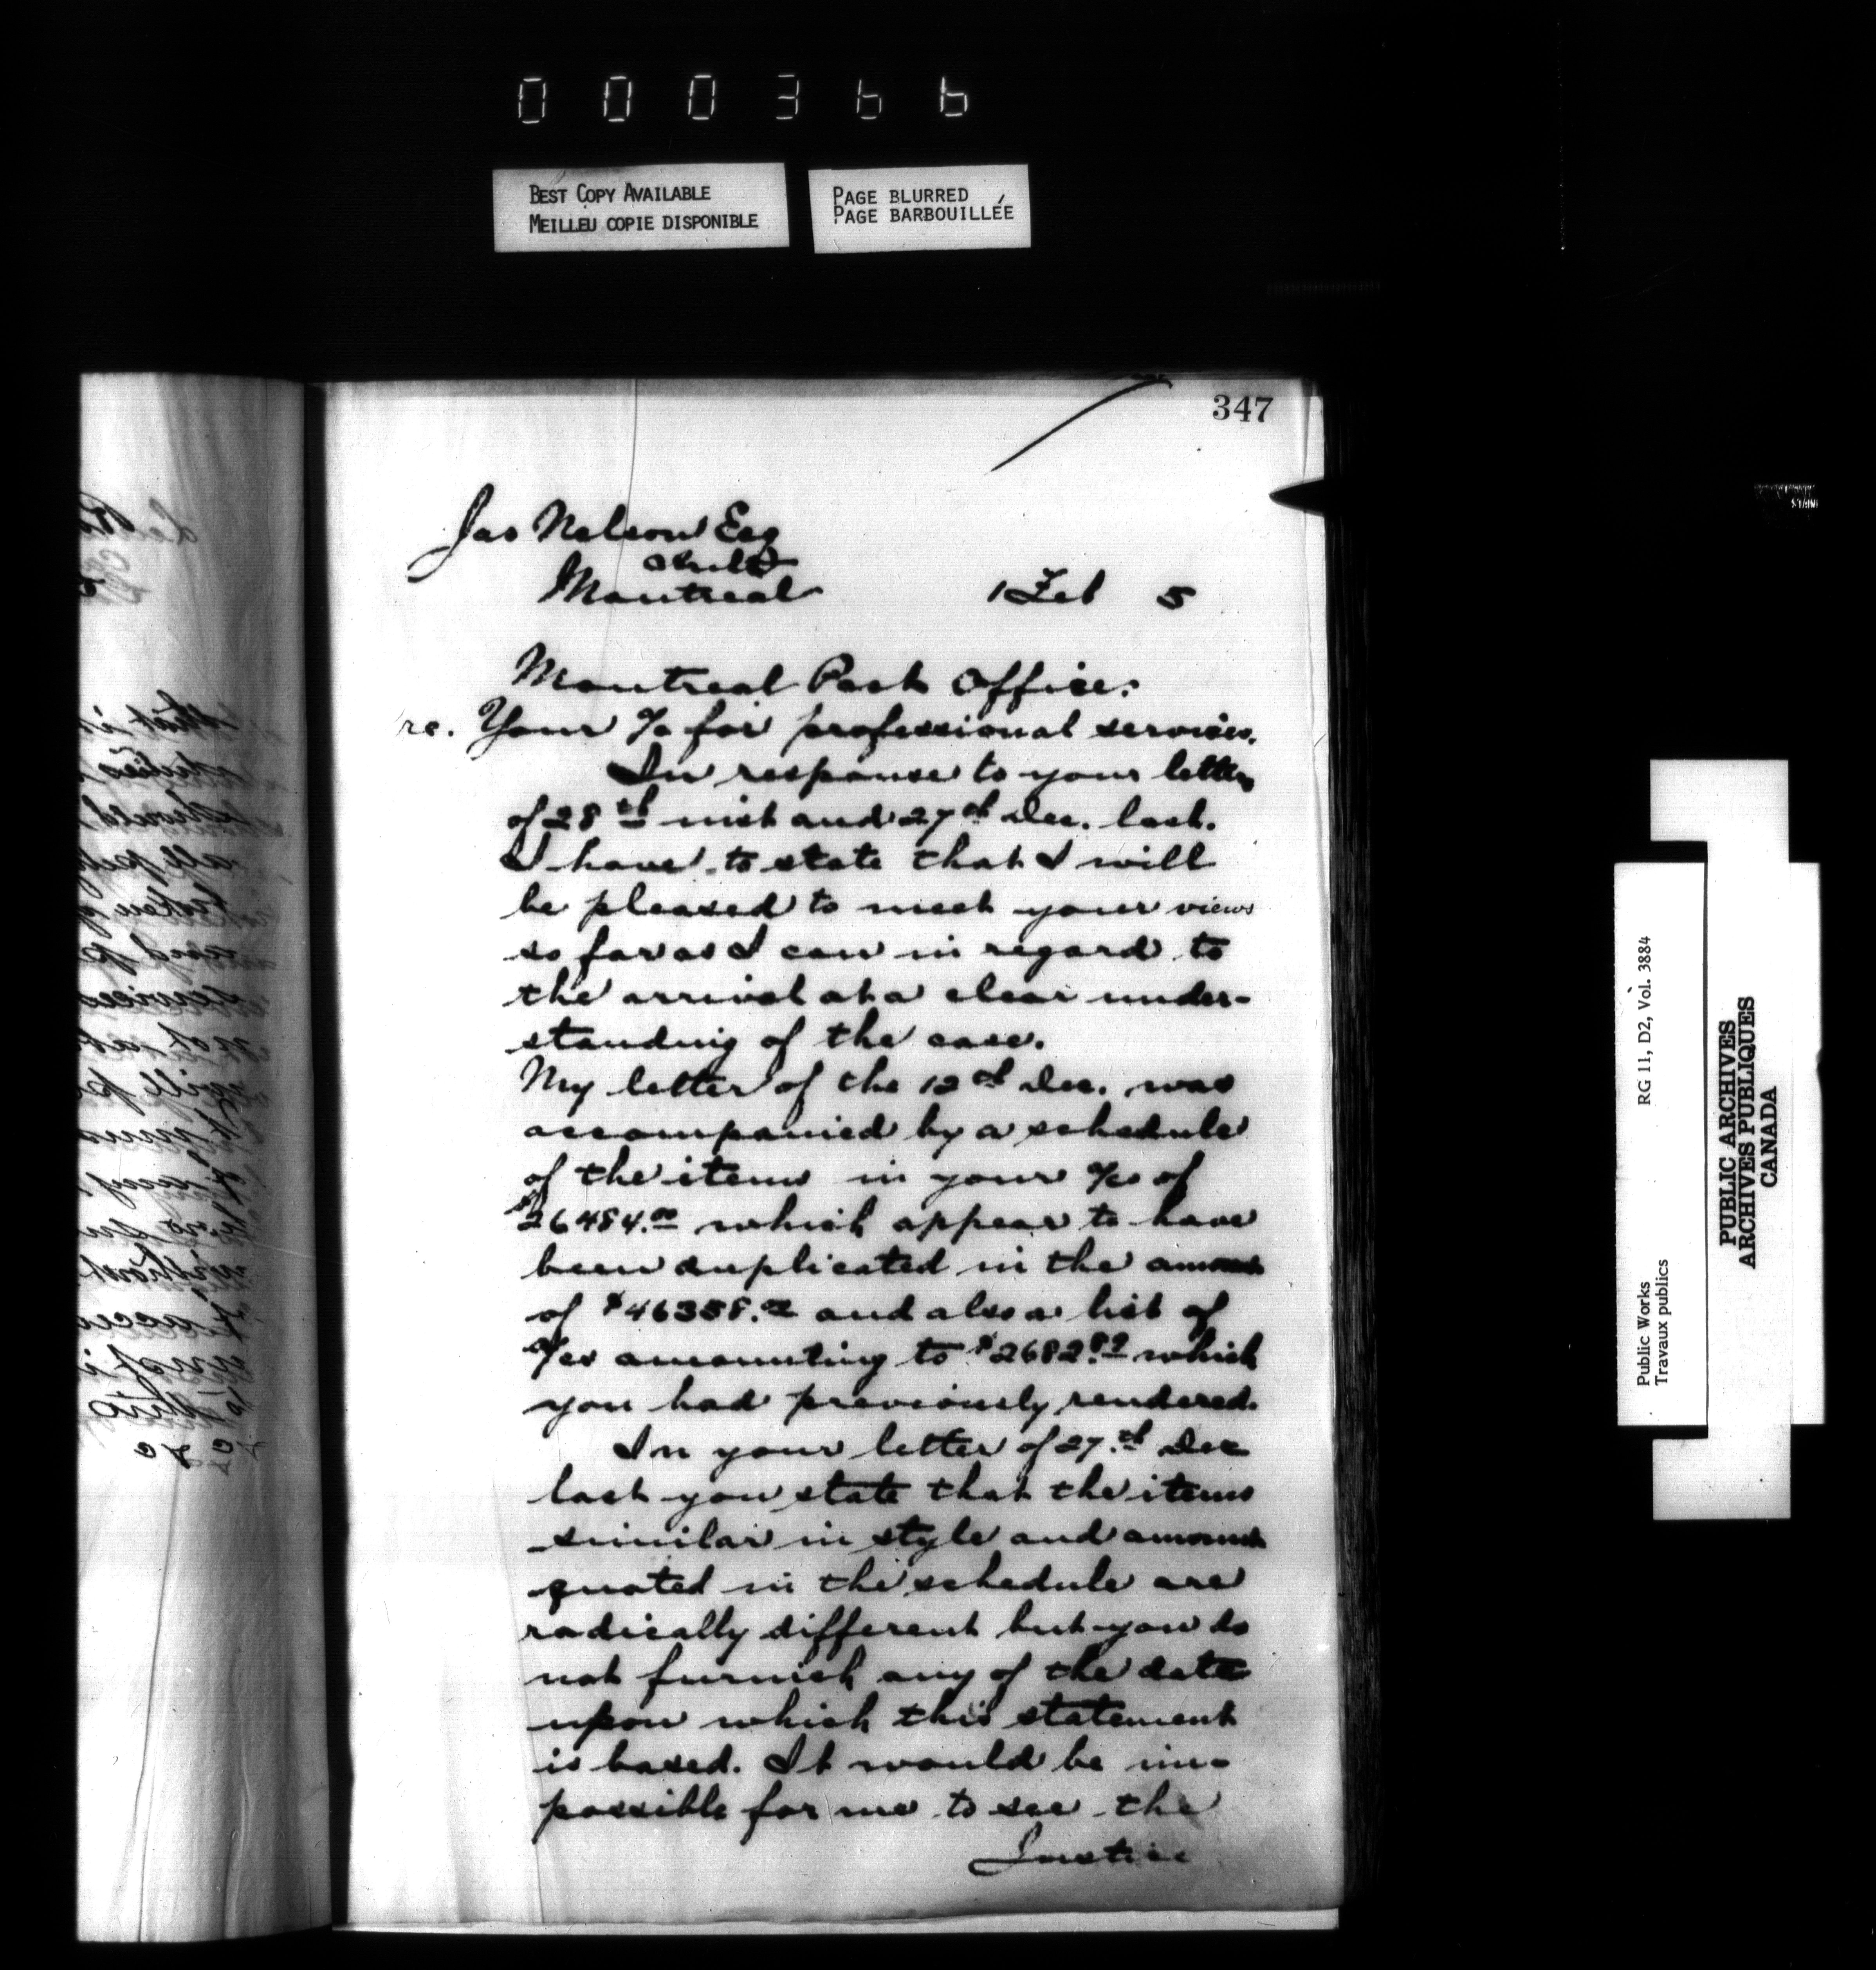 000366
BEST COPY AVAILABLE
MEILLEU COPIE DISPONIBLE
PAGE BLURRED
PAGE BARBOUILLÉE
347
Jas Nelson Esq
Archt
Montreal 1 Feb 5
Montreal Post Office.
re. Your a/c for professional services.
In response to your letters
of 28th inst and 27th Dec. last.
I have to state that I will
be pleased to meet your views
so far as I can in regard to
the arrival at a clear under-
standing of the case.
My letter of the 12th Dec. was
accompanied by a schedule
of the items in your a/cs of
$26484.00 which appear to have
been duplicated in the amount
of $46358.00 and also a list of
a/cs amounting to $2682.89 which
you had previously rendered.
In your letter of 27th Dec
last you state that the items
similar in style and amount
quoted in the schedule are
radically different but you do
not furnish any of the data
upon which this statement
is based. It would be im-
possible for me to see the
Justice
Public Works
Travaux publics
RG 11, D2, Vol. 3884
PUBLIC ARCHIVES
ARCHIVES PUBLIQUES
CANADA